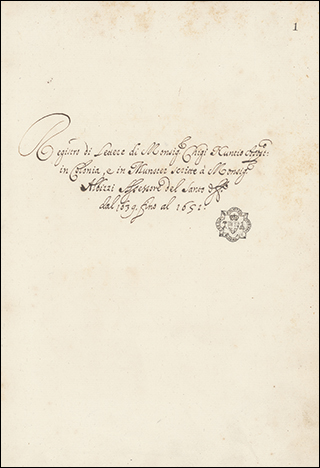 1
Registro di Lettere di Monsig.r Chigi Nuntio
in Colonia, e in Munster scritte à Monsig.r
Albizzi Assessore del Santo Off.o
dal 1639. fino al 1651.